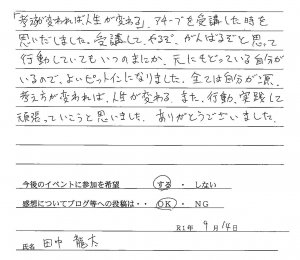 「考え方が変われば人生が変わる」、アチーブを受講した時を
思いだしました。受講して、やるぞ、がんばるぞと思って
行動していてもいつのまにか、元にもどっている自分が
いるので、よいピットインになりました。全ては自分が源、
考え方が変われば、人生が変わる、また、行動、実践して
頑張っていこうと思いました。ありがとうございました。
今後のイベントに参加を希望 する ・ しない
感想についてブログ等への投稿は・・ OK ・ NG
R1年 9月 14日
氏名 田中 龍太